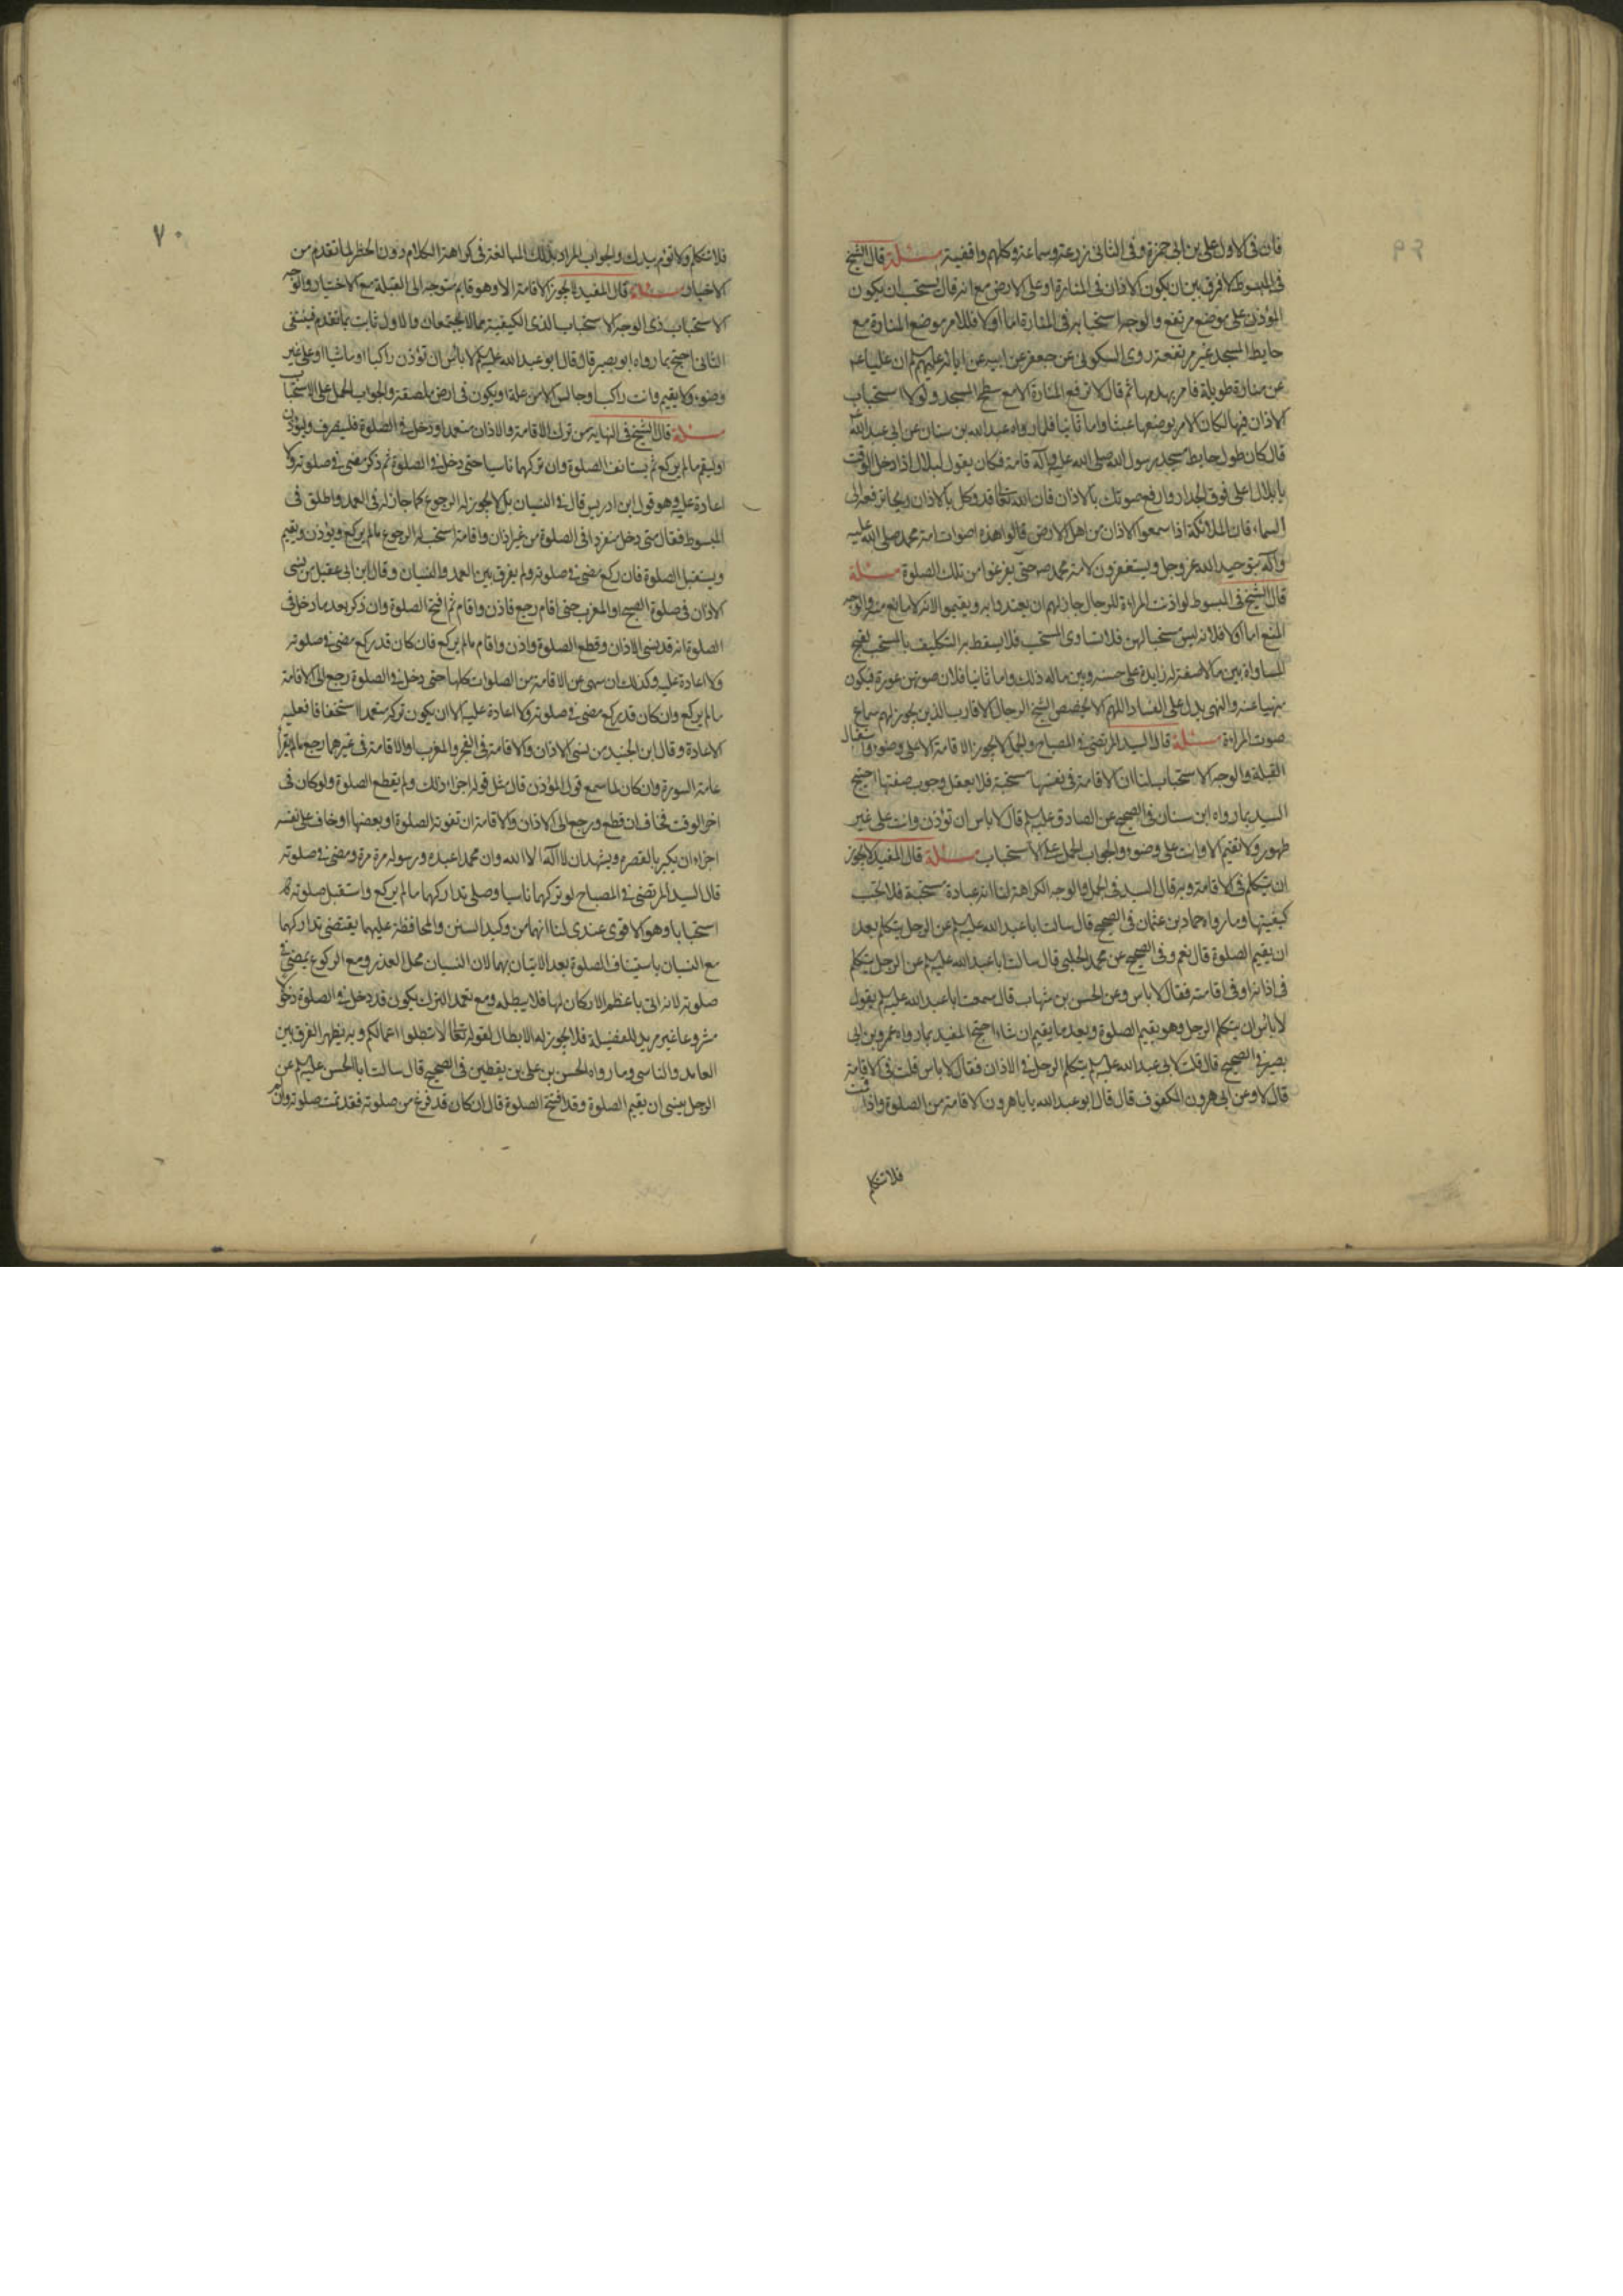 فان فى الاول على بن ابى حمزة وفى الثانى زرعة وسماعة وكلهم واقفية مسئلة قال الشيخ
فى المبسوط لا فرق بين ان يكون الاذان فى المنارة او على الارض مع انه قال يستحب ان يكون
المؤذن على موضع مرتفع والوجه استحبابه فى المنارة اما اولا فللامر بوضع المنارة مع
حايط المسجد غير مرتفعة روى السكونى عن جعفر عن ابيه عن ابائه عليهم السلم ان عليا ع مر
عن منارة طويلة فامر بهدمها ثم قال لا ترفع المنارة الا مع سطح المسجد ولولا استحباب
الاذان فيها لكان الامر بوضعها عبثا واما ثانيا فلما رواه عبد الله بن سنان عن ابى عبد الله ع
قال كان طول حايط مسجد رسول الله صلى الله عليه وآله قامة فكان يقول لبلال اذا دخل الوقت
يا بلال اعل فوق الجدار وارفع صوتك بالاذان فان الله تعالى قد وكل بالاذان ريحا ترفعه الى
السماء فان الملائكة اذا سمعوا الاذان من اهل الارض قالوا هذه اصوات امة محمد صلى الله عليه
وآله بتوحيد الله عز وجل ويستغفرون لامة محمد صه حتى يفرغوا من تلك الصلوة مسئلة
قال الشيخ فى المبسوط لو اذنت المراءة للرجال جاز لهم ان يعتدوا به ويقيموا لانه لا مانع منه والوجه
المنع اما اولا فلانه ليس مستحبا لهن فلا تساوى المستحب فلا يسقط به التكليف بالمستحب لقبح
المساواة بين ما لا صفة له زايدة على حسنه وبين ماله ذلك واما ثانيا فلان صوتهن عورة فيكون
منهيا عنه والنهى يدل على الفساد اللهم الا ان يخصص الشيخ الرجال الاقارب الذين يجوز لهم سماع
صوت المراءة مسئلة قال السيد المرتضى فى المصباح والجمل لا يجوز الاقامة الا على وضوء واستقبال
القبلة والوجه الاستحباب لنا ان الاقامة فى نفسها مستحبة فلا يعقل وجوب صفتها احتج
السيد بما رواه ابن سنان فى الصحيح عن الصادق عليه السلم قال لا باس ان تؤذن وانت على غير
طهور ولا تقيم الا وانت على وضوء والجواب الحمل على الاستحباب مسئلة قال المفيد لا يجوز
ان يتكلم فى الاقامة وبه قال السيد فى الجمل والوجه الكراهة لنا انه عبادة مستحبة فلا تجب
كيفيتها وما رواه حماد بن عثمان فى الصحيح قال سالت ابا عبد الله عليه السلم عن الرجل يتكلم بعد
ان يقيم الصلوة قال نعم وفى الصحيح عن محمد الحلبى قال سالت ابا عبد الله عليه السلم عن الرجل يتكلم
فى اذانه او فى اقامته فقال لا باس وعن الحسن بن شهاب قال سمعت ابا عبد الله عليه السلم يقول
لا باس ان يتكلم الرجل وهو يقيم الصلوة وبعد ما يقيم ان شاء احتج المفيد بما رواه عمرو بن ابى
نصر فى الصحيح قال قلت لابى عبد الله عليه السلم يتكلم الرجل فى الاذان فقال لا باس قلت فى الاقامة
قال لا وعن ابى هرون المكفوف قال قال ابو عبد الله يا باهرون الاقامة من الصلوة واذا اقمت
فلا تتكلم
٧٠
فلا تتكلم ولا تومِ بيدك والجواب المراد بذلك المبالغة فى كراهة الكلام دون الحظر لما تقدم من
الاخبار مسئلة قال المفيد لا يجوز الاقامة الا وهو قايم متوجه الى القبلة مع الاختيار والوجه
الاستحباب ذى الوجه الاستحباب لذى الكيفية مما لا يجتمعان والاول ثابت بما تقدم فينتفى
الثانى احتج بما رواه ابو بصير قال قال ابو عبد الله عليه السلم لا باس ان تؤذن راكبا او ماشيا او على غير
وضوء ولا يقيم وانت راكب او جالس الا من علة او يكون فى ارض ملصقة والجواب الحمل على الاستحباب
مسئلة قال الشيخ فى النهاية من ترك الاقامة والاذان متعمدا ودخل فى الصلوة فلينصرف وليؤذن
او ليقم ما لم يركع ثم يستانف الصلوة وان تركهما ناسيا حتى دخل فى الصلوة ثم ذكر مضى فى صلوته ولا
اعادة عليه وهو قول ابن ادريس قال فى النسيان بل لا يجوز له الرجوع كما جاز له فى العمد واطلق فى
المبسوط فقال متى دخل منفردا فى الصلوة من غير اذان واقامة استحب له الرجوع ما لم يركع ويؤذن ويقيم
ويستقبل الصلوة فان ركع مضى فى صلوته ولم يفرق بين العمد والنسيان وقال ابن ابى عقيل من نسى
الاذان فى صلوة الصبح او المغرب حتى اقام رجع فاذن واقام ثم افتتح الصلوة وان ذكر بعد ما دخل فى
الصلوة انه قد نسى الاذان وقطع الصلوة واذن واقام ما لم يركع فان كان قد ركع مضى فى صلوته
ولا اعادة عليه وكذلك ان سهى عن الاقامة من الصلوات كلها حتى دخل فى الصلوة رجع الى الاقامة
ما لم يركع وان كان قد ركع مضى فى صلوته ولا اعادة عليه الا ان يكون تركه متعمدا استخفافا فعليه
الاعادة وقال ابن الجنيد من نسى الاذان والاقامة فى الفجر والمغرب او الاقامة فى غيرهما رجع ما لم يقرأ
عامة السورة وان كان لما سمع قول المؤذن قال مثل قوله اجزاه ذلك ولم يقطع الصلوة ولو كان فى
اخر الوقت فخاف ان قطع ورجع الى الاذان والاقامة ان تفوته الصلوة او بعضها او خاف على نفسه
اجزاه ان يكبر بالقصره ويشهد ان لا اله الا الله وان محمدا عبده ورسوله مرة مرة ومضى فى صلوته
قال السيد المرتضى فى المصباح لو تركهما ناسيا وصلى تداركهما ما لم يركع واستقبل صلوته
استحبابا وهو الاقوى عندى لنا انهما من وكيد السنن والمحافظة عليهما يقتضى تداركهما
مع النسيان باستيناف الصلوة بعد الاتيان بهما لان النسيان محل العذر ومع الركوع يمضى فى
صلوته لانه اتى باعظم الاركان لها فلا يبطله ومع تعمد الترك يكون قد دخل فى الصلوة دخولا
مشروعا غير مريد للفضيلة فلا يجوز له الابطال لقوله تعالى لا تبطلوا اعمالكم وبه يظهر الفرق بين
العامد والناسى وما رواه الحسن بن على بن يقطين فى الصحيح قال سالت ابا الحسن عليه السلم عن
الرجل ينسى ان يقيم الصلوة وقد افتتح الصلوة قال ان كان قد فرغ من صلوته فقد تمت صلوته وان لم